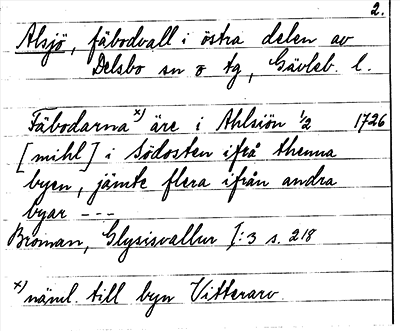 2.
Alsjö, fäbodvall i östra delen av
Delsbo sn o tg, Gävleb. l.
Fäbodarna x) äre i Ahlsiön 1/2 1726
[mihl] i Södosten ifrå thenna
byen, jämte flera ifrån andra
byar ---
Broman, Glysisvallur I:3 s. 218
x) näml. till byn Vitterarv.